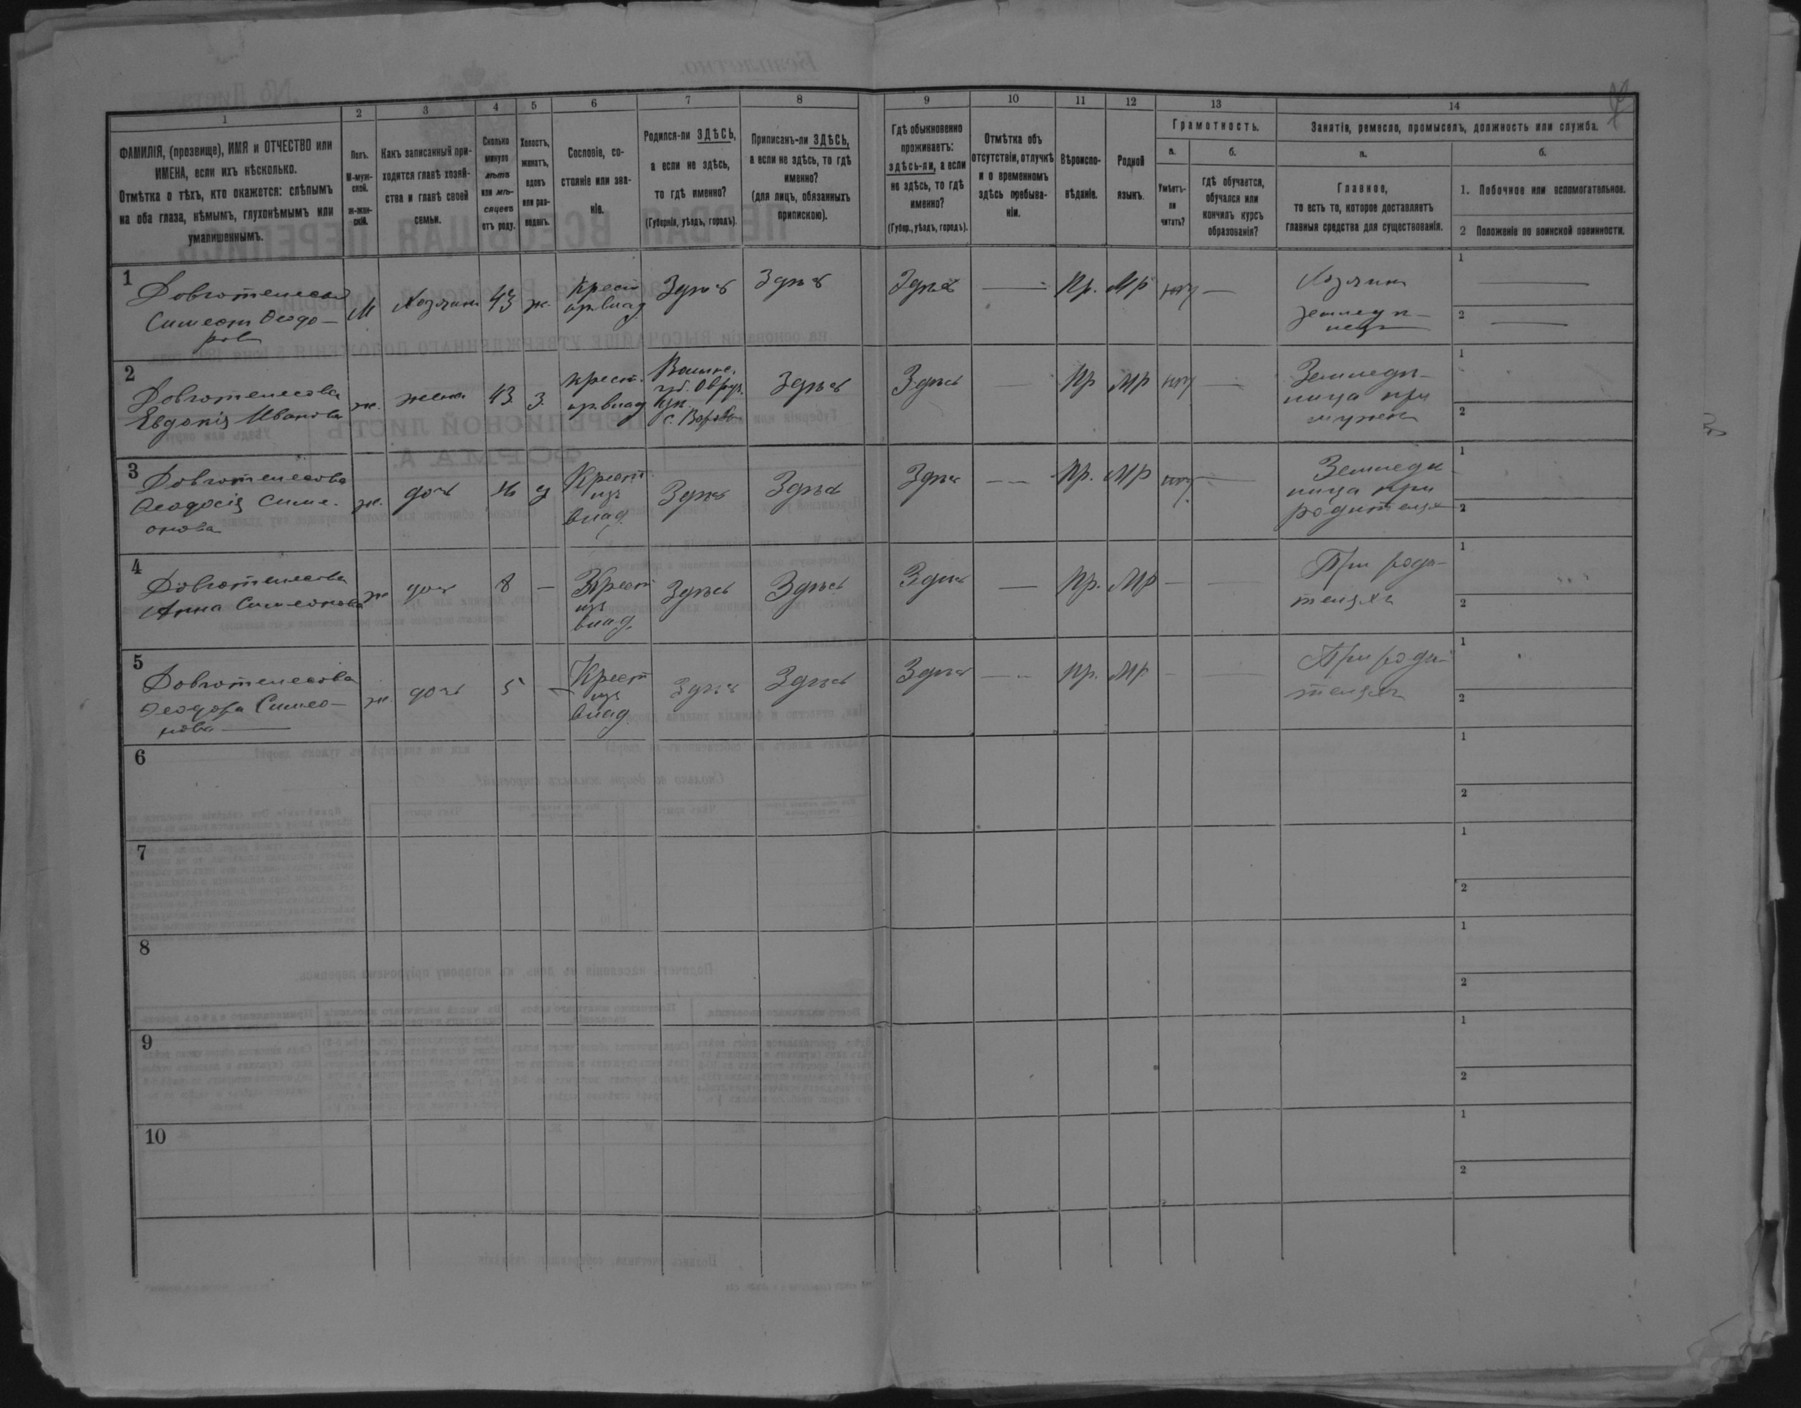 1 2 3 4 5 6 7 8 9 10 11 12 13 14
ФАМИЛІЯ, (прозвище), ИМЯ и ОТЧЕСТВО или
ИМЕНА, если ихъ нѣсколько.
Отмѣтка о тѣхъ, кто окажется: слѣпымъ
на оба глаза, нѣмымъ, глухонѣмымъ или
умалишеннымъ.
Полъ.
М-муж-
ской.
ж-жен-
скій.
Какъ записанный при-
ходится главѣ хозяй-
ства и главѣ своей
семьи.
Сколько
минуло
лѣтъ
или мѣ-
сяцевъ
отъ роду.
Холостъ,
женатъ,
вдовъ
или раз-
веденъ.
Сословіе, со-
стояніе или зва-
ніе.
Родился-ли ЗДѢСЬ,
а если не здѣсь,
то гдѣ именно?
(Губернія, уѣздъ, городъ).
Приписанъ-ли ЗДѢСЬ,
а если не здѣсь, то гдѣ
именно?
(для лицъ, обязанныхъ
припискою).
Гдѣ обыкновенно
проживаетъ:
здѣсь-ли, а если
не здѣсь, то гдѣ
именно?
(Губер., уѣздъ, городъ).
Отмѣтка объ
отсутствіи, отлучкѣ
и о временномъ
здѣсь пребыва-
ніи.
Вѣроиспо-
вѣданіе.
Родной
языкъ.
Грамотность.
а.
Умѣетъ-
ли
читать?
б.
Гдѣ обучается,
обучался или
кончилъ курсъ
образованія?
Занятіе, ремесло, промыселъ, должность или служба.
а.
Главное,
то есть то, которое доставляетъ
главныя средства для существованія.
б.
1. Побочное или вспомогательное.
2 Положеніе по воинской повинности.
1
Симеонъ Ѳеодо-
ровъ
М
Хозяинъ
43
ж.
Здѣсь
Здѣсь
Здѣсь
Пр.
МР
нѣт
Хозяинъ
1
2
2
Довготелесова
Евдокія Иванова
ж.
жена
43
З
Здѣсь
Здѣсь
Пр
МР
нѣт
Земледѣ-
лица при
мужѣ
1
2
3
Довготелесова
Ѳеодосія Симе-
онова
ж.
дочь
16
Крест.
изъ
влад.
Здѣсь
Здѣсь
Здѣсь
Пр.
МР
нѣт
Земледѣ-
лица при
родителяхъ
1
2
4
Довготелесова
Анна Симеонова
ж
дочь
8
—
Крест
изъ
влад.
Здѣсь
Здѣсь
Здѣсь
—
Пр.
МР
—
При роди-
теляхъ
1
2
5
Довготелесова
Ѳеодора Симео-
нова
ж.
дочь
5
—
Крест
изъ
влад
Здѣсь
Здѣсь
Здѣсь
Пр.
МР
—
При роди-
теляхъ
1
2
6
1
2
7
1
2
8
1
2
9
1
2
10
1
2